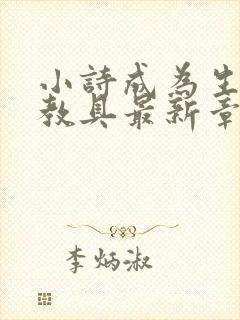 小詩成為生
教具最新章
李炳淑